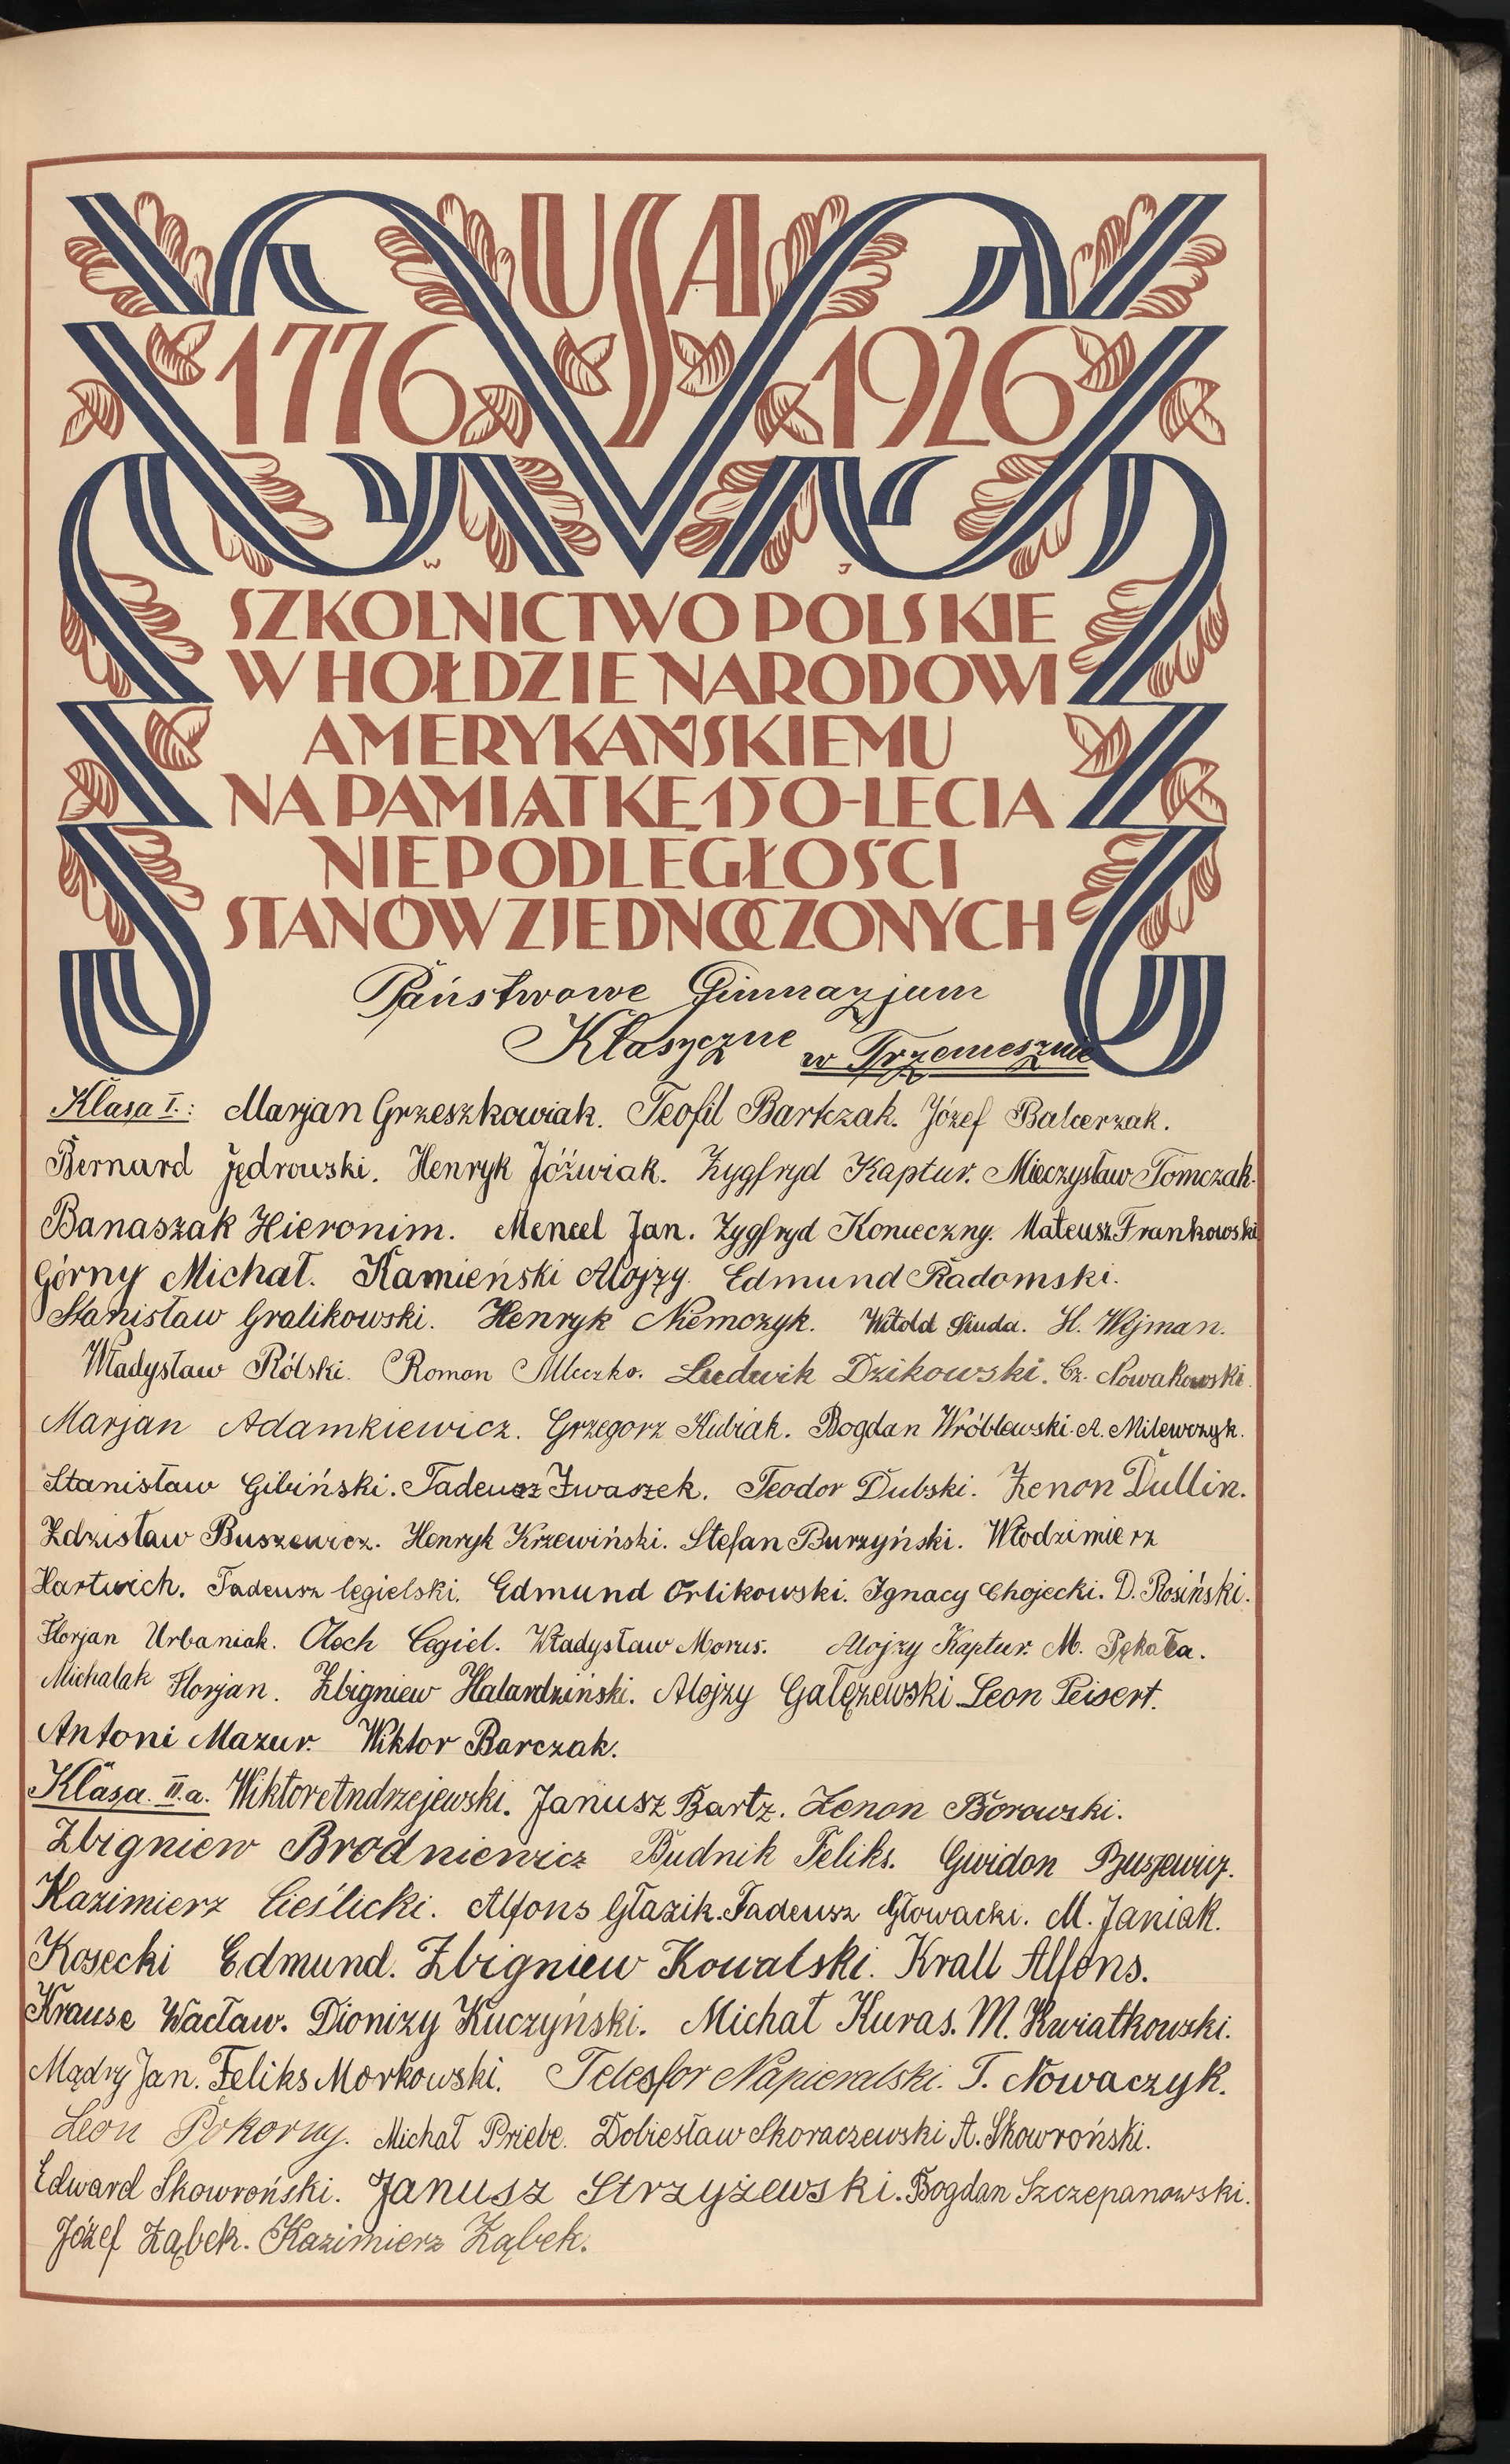 USA
1776 1926
W J
SZKOLNICTWO POLSKIE
W HOŁDZIE NARODOWI
AMERYKAŃSKIEMU
NA PAMIĄTKĘ 150-LECIA
NIEPODLEGŁOŚCI
STANÓW ZJEDNOCZONYCH
Państwowe Gimnazjum
Klasyczne w Trzemesznie
Klasa I.: Marjan Grzeszkowiak. Teofil Bartczak. Józef Balcerzak.
Bernard Jędrowski. Henryk Jóźwiak. Zygfryd Kaptur. Mieczysław Tomczak.
Banaszak Hieronim. Mencel Jan. Zygfryd Konieczny. Mateusz Frankowski
Górny Michał. Kamieński Alojzy. Edmund Radomski.
Stanisław Gralikowski. Henryk Niemczyk. Witold Siuda. H. Wijman.
Władysław Rólski. Roman Mleczko. Ludwik Dzikowski. Cz. Nowakowski.
Marjan Adamkiewicz. Grzegorz Kubiak. Bogdan Wróblewski. A. Milewczyk.
Stanisław Gibiński. Tadeusz Iwaszek. Teodor Dubski. Zenon Dullin.
Zdzisław Buszewicz. Henryk Krzewiński. Stefan Burzyński. Włodzimierz
Hartwich. Tadeusz Cegielski. Edmund Orlikowski. Ignacy Chojecki. D. Rosiński.
Florjan Urbaniak. Olech Cegiel. Władysław Morus. Alojzy Kaptur. M. Pękała.
Michalak Florjan. Zbigniew Halardziński. Alojzy Gałęzewski. Leon Peisert.
Antoni Mazur. Wiktor Barczak.
Klasa II.a. Wiktor Andrzejewski. Janusz Bartz. Zenon Borowski.
Zbigniew Brodniewicz Budnik Feliks. Gwidon Buszewicz.
Kazimierz Cieślicki. Alfons Głazik. Tadeusz Głowacki. M. Janiak.
Kosecki Edmund. Zbigniew Kowalski. Krall Alfons.
Krause Wacław. Dionizy Kuczyński. Michał Kuras. M. Kwiatkowski.
Mądry Jan. Feliks Morkowski. Telesfor Napieralski. T. Nowaczyk.
Leon Pokorny. Michał Priebe. Dobiesław Skoraczewski A. Skowroński.
Edward Skowroński. Janusz Strzyżewski. Bogdan Szczepanowski.
Józef Ząbek. Kazimierz Ząbek.